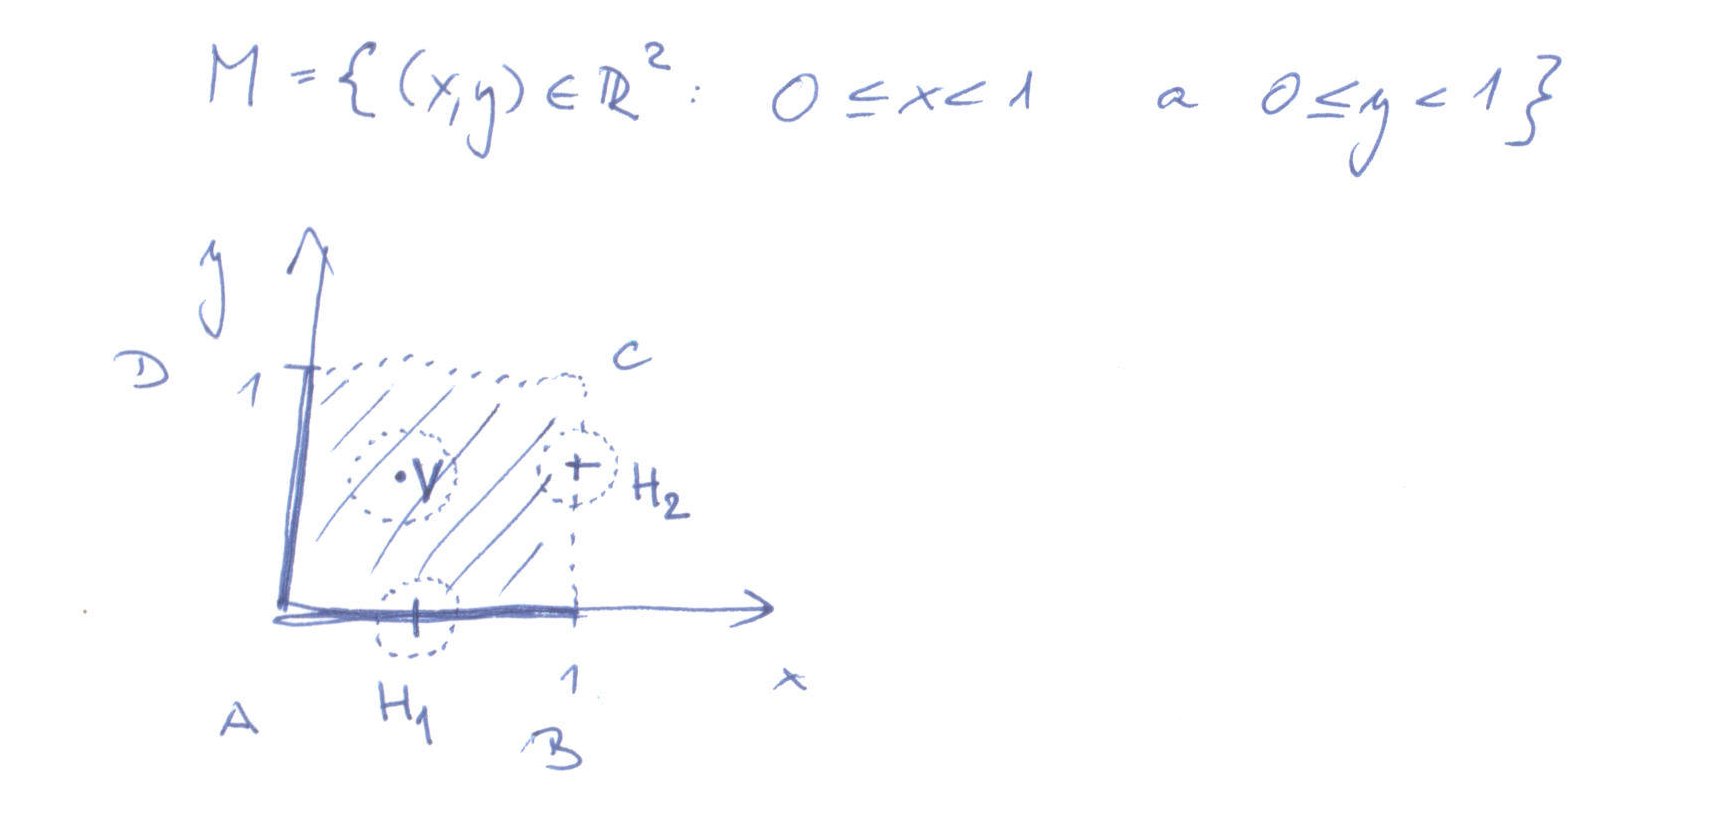 M = { (x,y) ∈ ℝ² : 0 ≤ x < 1 a 0 ≤ y < 1 }
y
D 1 C
V H₂
H₁ 1 x
A B